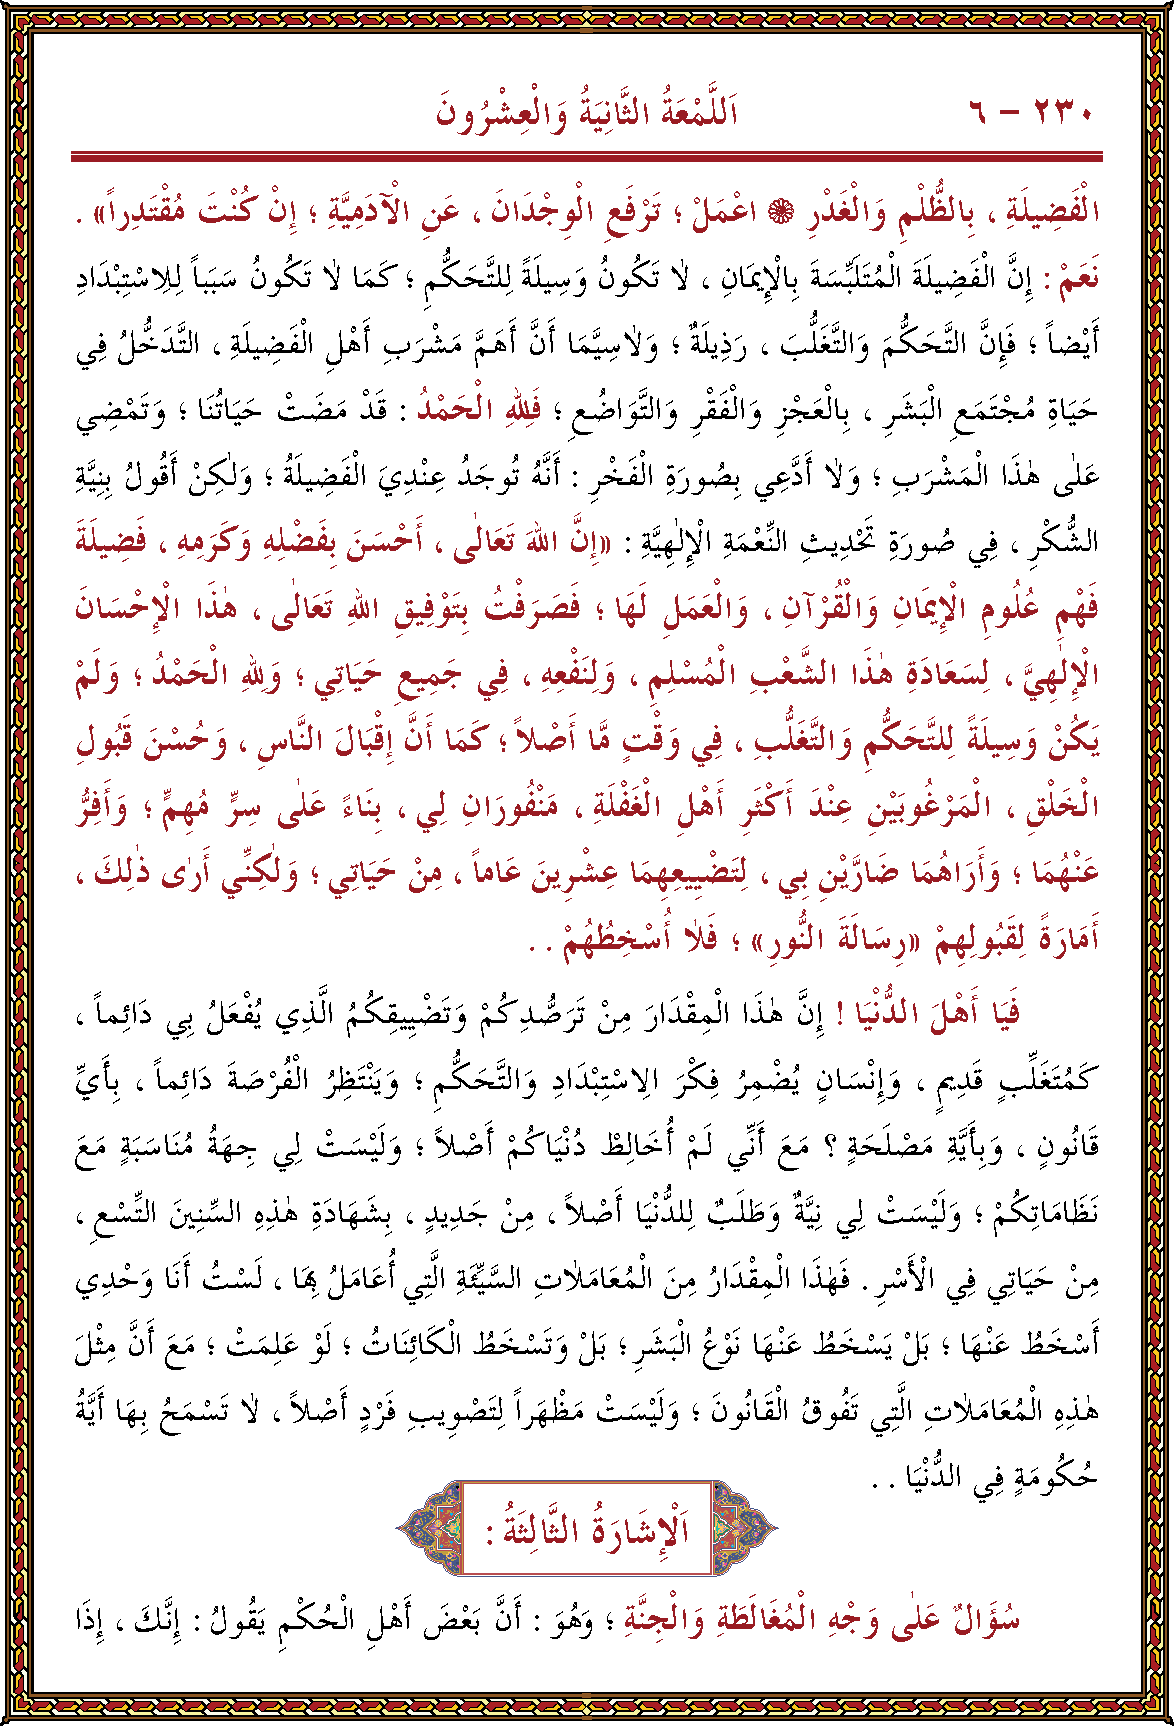 ٢٣٠ – ٦ اَللَّمْعَةُ الثَّانِيَةُ وَالْعِشْرُونَ
الْفَضِيلَةِ ، بِالظُّلْمِ وَالْغَدْرِ ❁ اعْمَلْ ؛ تَرْفَعِ الْوِجْدَانَ ، عَنِ الْآدَمِيَّةِ ؛ إِنْ كُنْتَ مُقْتَدِراً» .
نَعَمْ : إِنَّ الْفَضِيلَةَ الْمُتَلَبِّسَةَ بِالْإِيمَانِ ، لَا تَكُونُ وَسِيلَةً لِلتَّحَكُّمِ ؛ كَمَا لَا تَكُونُ سَبَباً لِلِاسْتِبْدَادِ
أَيْضاً ؛ فَإِنَّ التَّحَكُّمَ وَالتَّغَلُّبَ ، رَذِيلَةٌ ؛ وَلَاسِيَّمَا أَنَّ أَهَمَّ مَشْرَبِ أَهْلِ الْفَضِيلَةِ ، التَّدَخُّلُ فِي
حَيَاةِ مُجْتَمَعِ الْبَشَرِ ، بِالْعَجْزِ وَالْفَقْرِ وَالتَّوَاضُعِ ؛ فَلِلّٰهِ الْحَمْدُ : قَدْ مَضَتْ حَيَاتُنَا ؛ وَتَمْضِي
عَلٰى هٰذَا الْمَشْرَبِ ؛ وَلَا أَدَّعِي بِصُورَةِ الْفَخْرِ : أَنَّهُ تُوجَدُ عِنْدِيَ الْفَضِيلَةُ ؛ وَلٰكِنْ أَقُولُ بِنِيَّةِ
الشُّكْرِ ، فِي صُورَةِ تَحْدِيثِ النِّعْمَةِ الْإِلٰهِيَّةِ : «إِنَّ اللهَ تَعَالٰى ، أَحْسَنَ بِفَضْلِهِ وَكَرَمِهِ ، فَضِيلَةَ
فَهْمِ عُلُومِ الْإِيمَانِ وَالْقُرْآنِ ، وَالْعَمَلِ لَهَا ؛ فَصَرَفْتُ بِتَوْفِيقِ اللهِ تَعَالٰى ، هٰذَا الْإِحْسَانَ
الْإِلٰهِيَّ ، لِسَعَادَةِ هٰذَا الشَّعْبِ الْمُسْلِمِ ، وَلِنَفْعِهِ ، فِي جَمِيعِ حَيَاتِي ؛ وَلِلّٰهِ الْحَمْدُ ؛ وَلَمْ
يَكُنْ وَسِيلَةً لِلتَّحَكُّمِ وَالتَّغَلُّبِ ، فِي وَقْتٍ مَّا أَصْلاً ؛ كَمَا أَنَّ إِقْبَالَ النَّاسِ ، وَحُسْنَ قُبُولِ
الْخَلْقِ ، الْمَرْغُوبَيْنِ عِنْدَ أَكْثَرِ أَهْلِ الْغَفْلَةِ ، مَنْفُورَانِ لِي ، بِنَاءً عَلٰى سِرٍّ مُهِمٍّ ؛ وَأَفِرُّ
عَنْهُمَا ؛ وَأَرَاهُمَا ضَارَّيْنِ بِي ، لِتَضْيِيعِهِمَا عِشْرِينَ عَاماً ، مِنْ حَيَاتِي ؛ وَلٰكِنِّي أَرٰى ذٰلِكَ ،
أَمَارَةً لِقَبُولِهِمْ «رِسَالَةَ النُّورِ» ؛ فَلَا أُسْخِطُهُمْ . .
فَيَا أَهْلَ الدُّنْيَا ! إِنَّ هٰذَا الْمِقْدَارَ مِنْ تَرَصُّدِكُمْ وَتَضْيِيقِكُمُ الَّذِي يُفْعَلُ بِي دَائِماً ،
كَمُتَغَلِّبٍ قَدِيمٍ ، وَإِنْسَانٍ يُضْمِرُ فِكْرَ الِاسْتِبْدَادِ وَالتَّحَكُّمِ ؛ وَيَنْتَظِرُ الْفُرْصَةَ دَائِماً ، بِأَيِّ
قَانُونٍ ، وَبِأَيَّةِ مَصْلَحَةٍ ؟ مَعَ أَنِّي لَمْ أُخَالِطْ دُنْيَاكُمْ أَصْلاً ؛ وَلَيْسَتْ لِي جِهَةُ مُنَاسَبَةٍ مَعَ
نَظَامَاتِكُمْ ؛ وَلَيْسَتْ لِي نِيَّةٌ وَطَلَبٌ لِلدُّنْيَا أَصْلاً ، مِنْ جَدِيدٍ ، بِشَهَادَةِ هٰذِهِ السِّنِينَ التِّسْعِ ،
مِنْ حَيَاتِي فِي الْأَسْرِ . فَهٰذَا الْمِقْدَارُ مِنَ الْمُعَامَلَاتِ السَّيِّئَةِ الَّتِي أُعَامَلُ بِهَا ، لَسْتُ أَنَا وَحْدِي
أَسْخَطُ عَنْهَا ؛ بَلْ يَسْخَطُ عَنْهَا نَوْعُ الْبَشَرِ ؛ بَلْ وَتَسْخَطُ الْكَائِنَاتُ ؛ لَوْ عَلِمَتْ ؛ مَعَ أَنَّ مِثْلَ
هٰذِهِ الْمُعَامَلَاتِ الَّتِي تَفُوقُ الْقَانُونَ ؛ وَلَيْسَتْ مَظْهَراً لِتَصْوِيبِ فَرْدٍ أَصْلاً ، لَا تَسْمَحُ بِهَا أَيَّةُ
حُكُومَةٍ فِي الدُّنْيَا . .
اَلْإِشَارَةُ الثَّالِثَةُ :
سُؤَالٌ عَلٰى وَجْهِ الْمُغَالَطَةِ وَالْجِنَّةِ ؛ وَهُوَ : أَنَّ بَعْضَ أَهْلِ الْحُكْمِ يَقُولُ : إِنَّكَ ، إِذَا